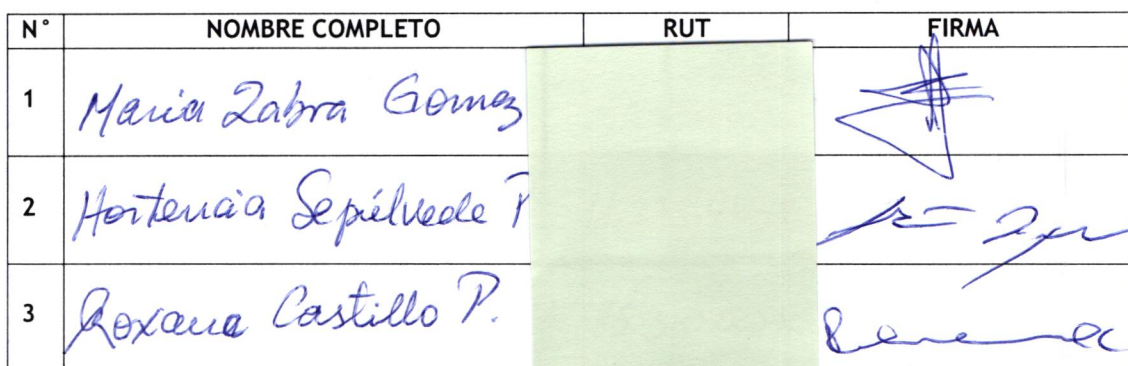 N° NOMBRE COMPLETO RUT FIRMA
1 Maria Zabra Gomez
2 Hortencia Sepúlveda P
3 Roxana Castillo P.